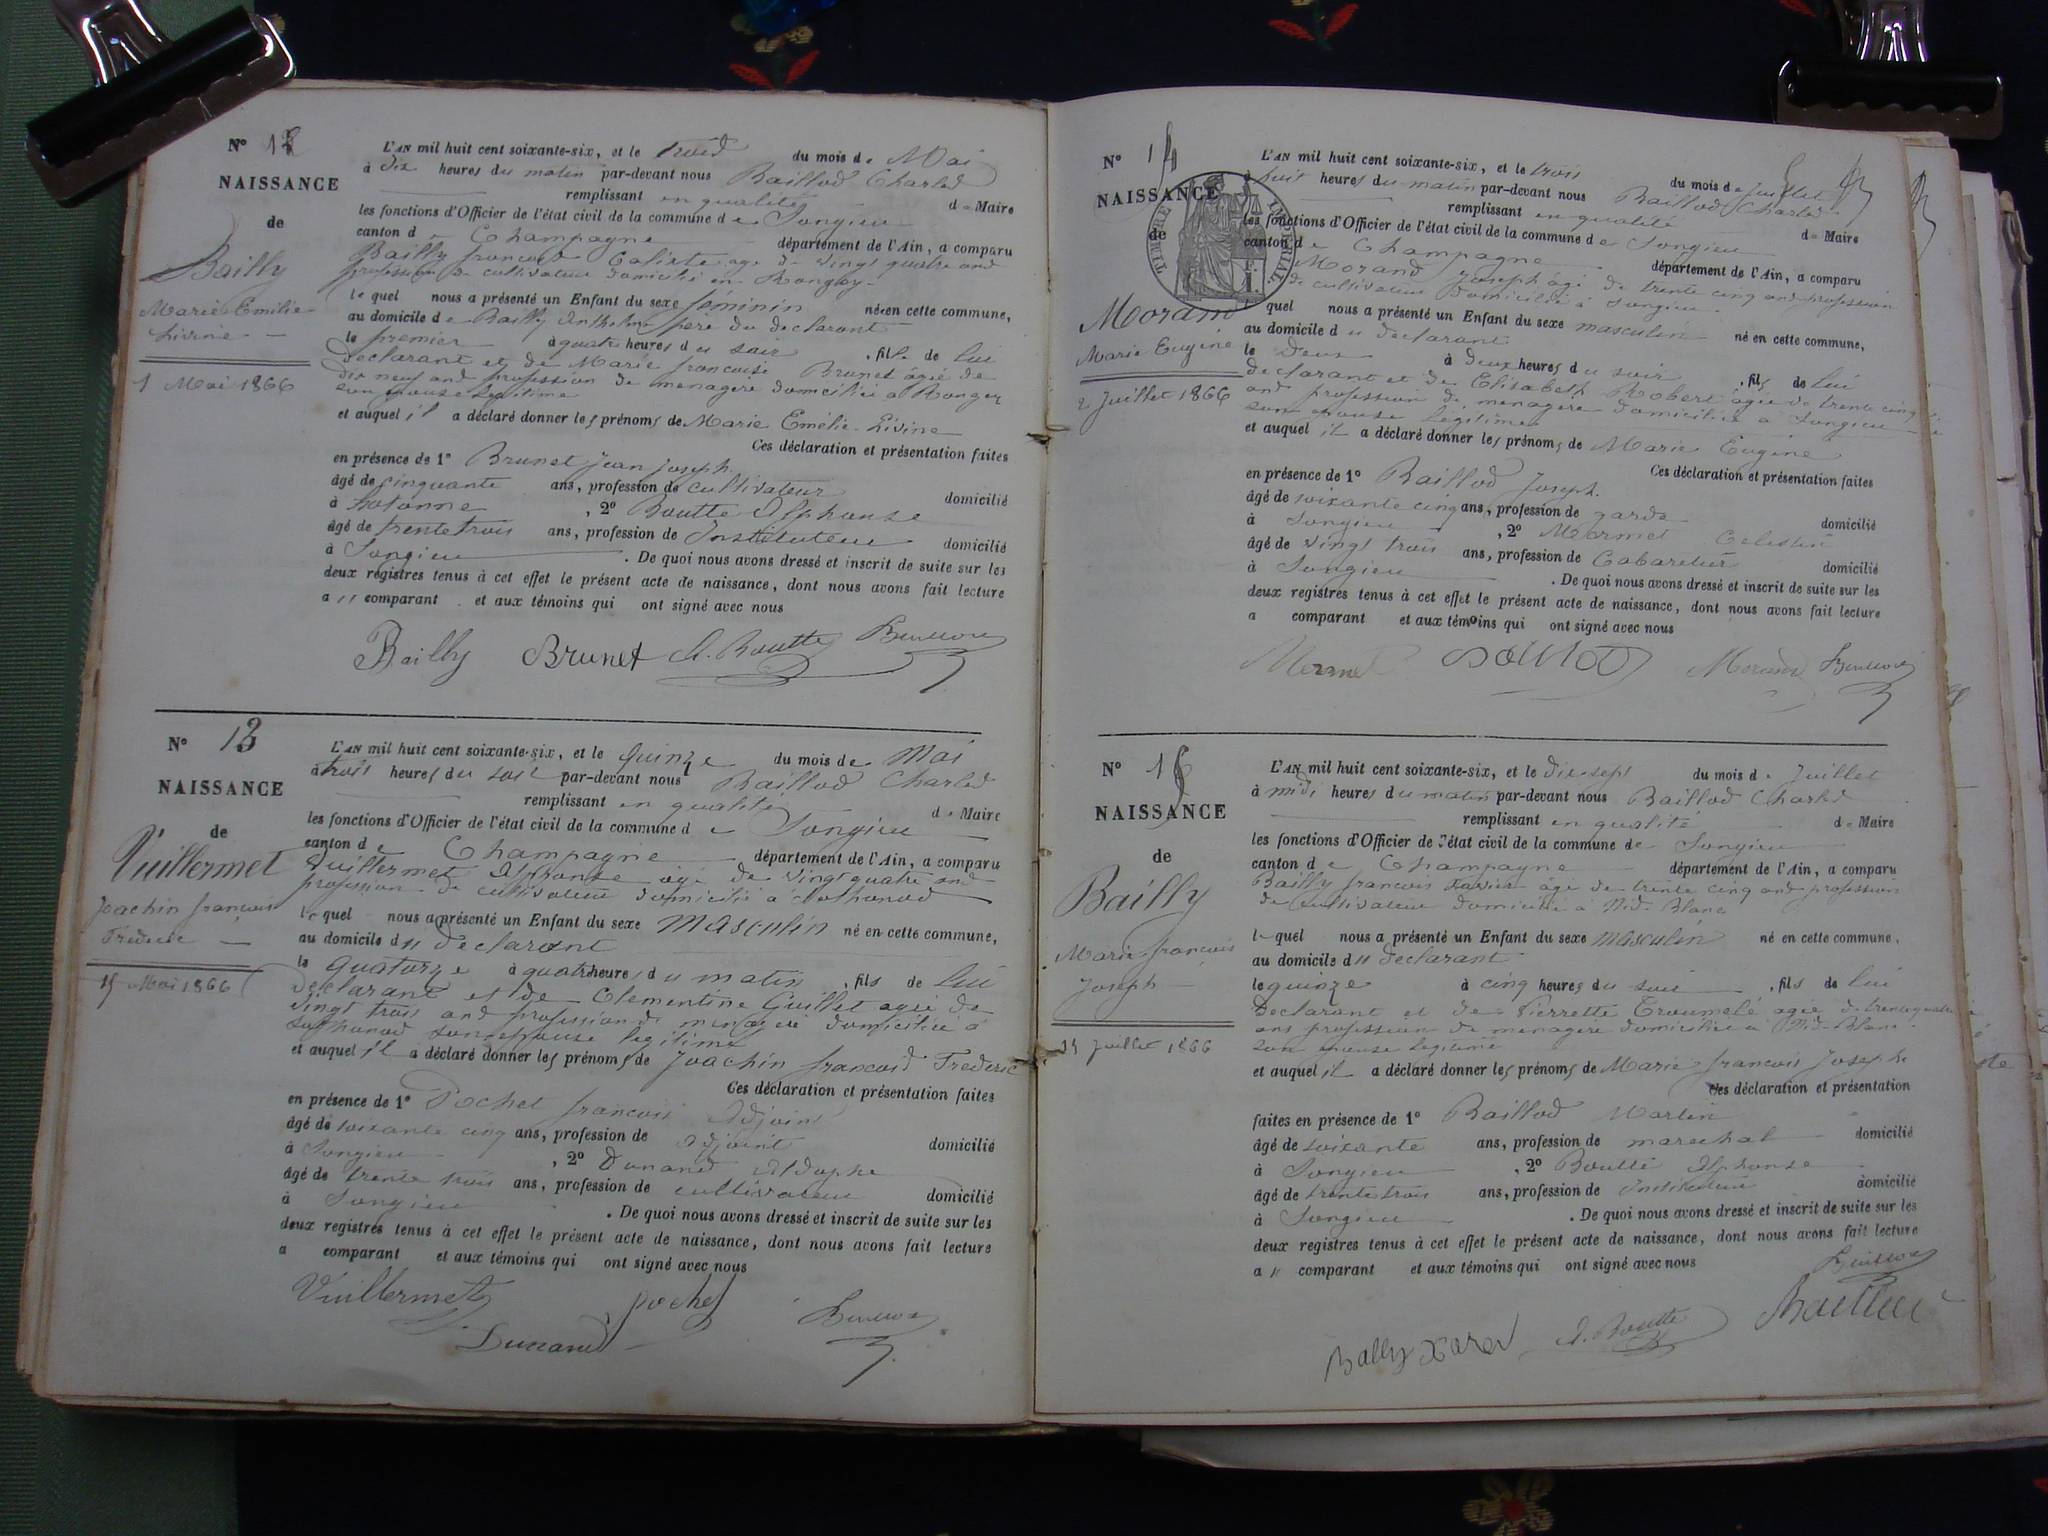 N° 12
NAISSANCE
de
Bailly
Marie Emilie
Livine
1 Mai 1866
L'AN mil huit cent soixante-six, et le trois du mois de Mai
à dix heures du matin par-devant nous Baillod Charles
remplissant en qualité de Maire
les fonctions d'Officier de l'état civil de la commune de Songieu
canton de Champagne département de l'Ain, a comparu
Bailly françois Calixte agé de vingt quatre ans
profession de cultivateur domicilié en
le quel nous a présenté un Enfant du sexe féminin né en cette commune,
au domicile de Bailly Anthelme père du declarant
le premier à quatre heures du soir , fille de lui
declarant et de Marie françoise Brunet âgée de
dix neuf ans profession de menagère domiciliée à
son épouse légitime
et auquel il a déclaré donner les prénoms de Marie Emélie Livine
Ces déclaration et présentation faites
en présence de 1° Brunet Jean Joseph
âgé de cinquante ans, profession de cultivateur domicilié
à hotonne , 2° Boutte Alphonse
âgé de trente trois ans, profession de Instituteur domicilié
à Songieu . De quoi nous avons dressé et inscrit de suite sur les
deux registres tenus à cet effet le présent acte de naissance, dont nous avons fait lecture
a u comparant et aux témoins qui ont signé avec nous
Bailly Brunet A. Boutte
N° 13
NAISSANCE
de
Vuillermet
Joachin françois
Frédéric
15 Mai 1866
L'AN mil huit cent soixante-six, et le quinze du mois de Mai
à trois heures du soir par-devant nous Baillod Charles
remplissant en qualité de Maire
les fonctions d'Officier de l'état civil de la commune de Songieu
canton de Champagne département de l'Ain, a comparu
Vuillermet Alphonse agé de vingt quatre ans
profession de cultivateur domicilié à Sothonod
le quel nous a présenté un Enfant du sexe masculin né en cette commune,
au domicile du declarant
le quatorze à quatre heures du matin , fils de lui
declarant et de Clementine Guillet agée de
vingt trois ans profession de menagère domiciliée à
Sothonod son epouse legitime
et auquel il a déclaré donner les prénoms de Joachin francois Frederic
Ces déclaration et présentation faites
en présence de 1° Pochet francois Adjoint
âgé de soixante cinq ans, profession de Adjoint domicilié
à Songieu , 2° Dunand
âgé de trente trois ans, profession de cultivateur domicilié
à Songieu . De quoi nous avons dressé et inscrit de suite sur les
deux registres tenus à cet effet le présent acte de naissance, dont nous avons fait lecture
a comparant et aux témoins qui ont signé avec nous
Vuillermet pochet
Dunand
N° 14
NAISSANCE
de
TIMBRE IMPERIAL
Morand
Marie Eugéne
2 Juillet 1866
L'AN mil huit cent soixante-six, et le trois du mois de Juillet
à huit heures du matin par-devant nous Baillod Charles
remplissant en qualité de Maire
les fonctions d'Officier de l'état civil de la commune de Songieu
canton de Champagne département de l'Ain, a comparu
Morand Joseph âgé de trente cinq ans profession
de cultivateur domicilié à Songieu
quel nous a présenté un Enfant du sexe masculin né en cette commune,
au domicile du declarant
le deux à deux heures du soir , fils de lui
declarant et de Elisabeth Robert agée de trente cinq
ans profession de menagère domiciliée à Songieu
son epouse legitime
et auquel il a déclaré donner les prénoms de Marie Eugéne
Ces déclaration et présentation faites
en présence de 1° Baillod Joseph
âgé de soixante cinq ans, profession de garde domicilié
à Songieu , 2° Mermet Celestin
âgé de vingt trois ans, profession de Cabaretier domicilié
à Songieu . De quoi nous avons dressé et inscrit de suite sur les
deux registres tenus à cet effet le présent acte de naissance, dont nous avons fait lecture
a comparant et aux témoins qui ont signé avec nous
Mermet Morand
N° 15
NAISSANCE
de
Bailly
Marie françois
Joseph
15 Juillet 1866
L'AN mil huit cent soixante-six, et le dix-sept du mois de Juillet
à midi heures du matin par-devant nous Baillod Charles
remplissant en qualité de Maire
les fonctions d'Officier de l'état civil de la commune de Songieu
canton de Champagne département de l'Ain, a comparu
Bailly françois Xavier âgé de trente cinq ans profession
de cultivateur domicilié à Nid-Blanc
le quel nous a présenté un Enfant du sexe masculin né en cette commune,
au domicile du declarant
le quinze à cinq heures du soir , fils de lui
Declarant et de Pierrette agée de trente quatre
ans profession de menagère domiciliée à Nid-Blanc
son epouse legitime
et auquel il a déclaré donner les prénoms de Marie françois Joseph
Ces déclaration et présentation
faites en présence de 1° Baillod Martin
âgé de soixante ans, profession de marechal domicilié
à Songieu , 2° Boutte Alphonse
âgé de trente trois ans, profession de Instituteur domicilié
à Songieu . De quoi nous avons dressé et inscrit de suite sur les
deux registres tenus à cet effet le présent acte de naissance, dont nous avons fait lecture
a u comparant et aux témoins qui ont signé avec nous
Bally A. Boutte